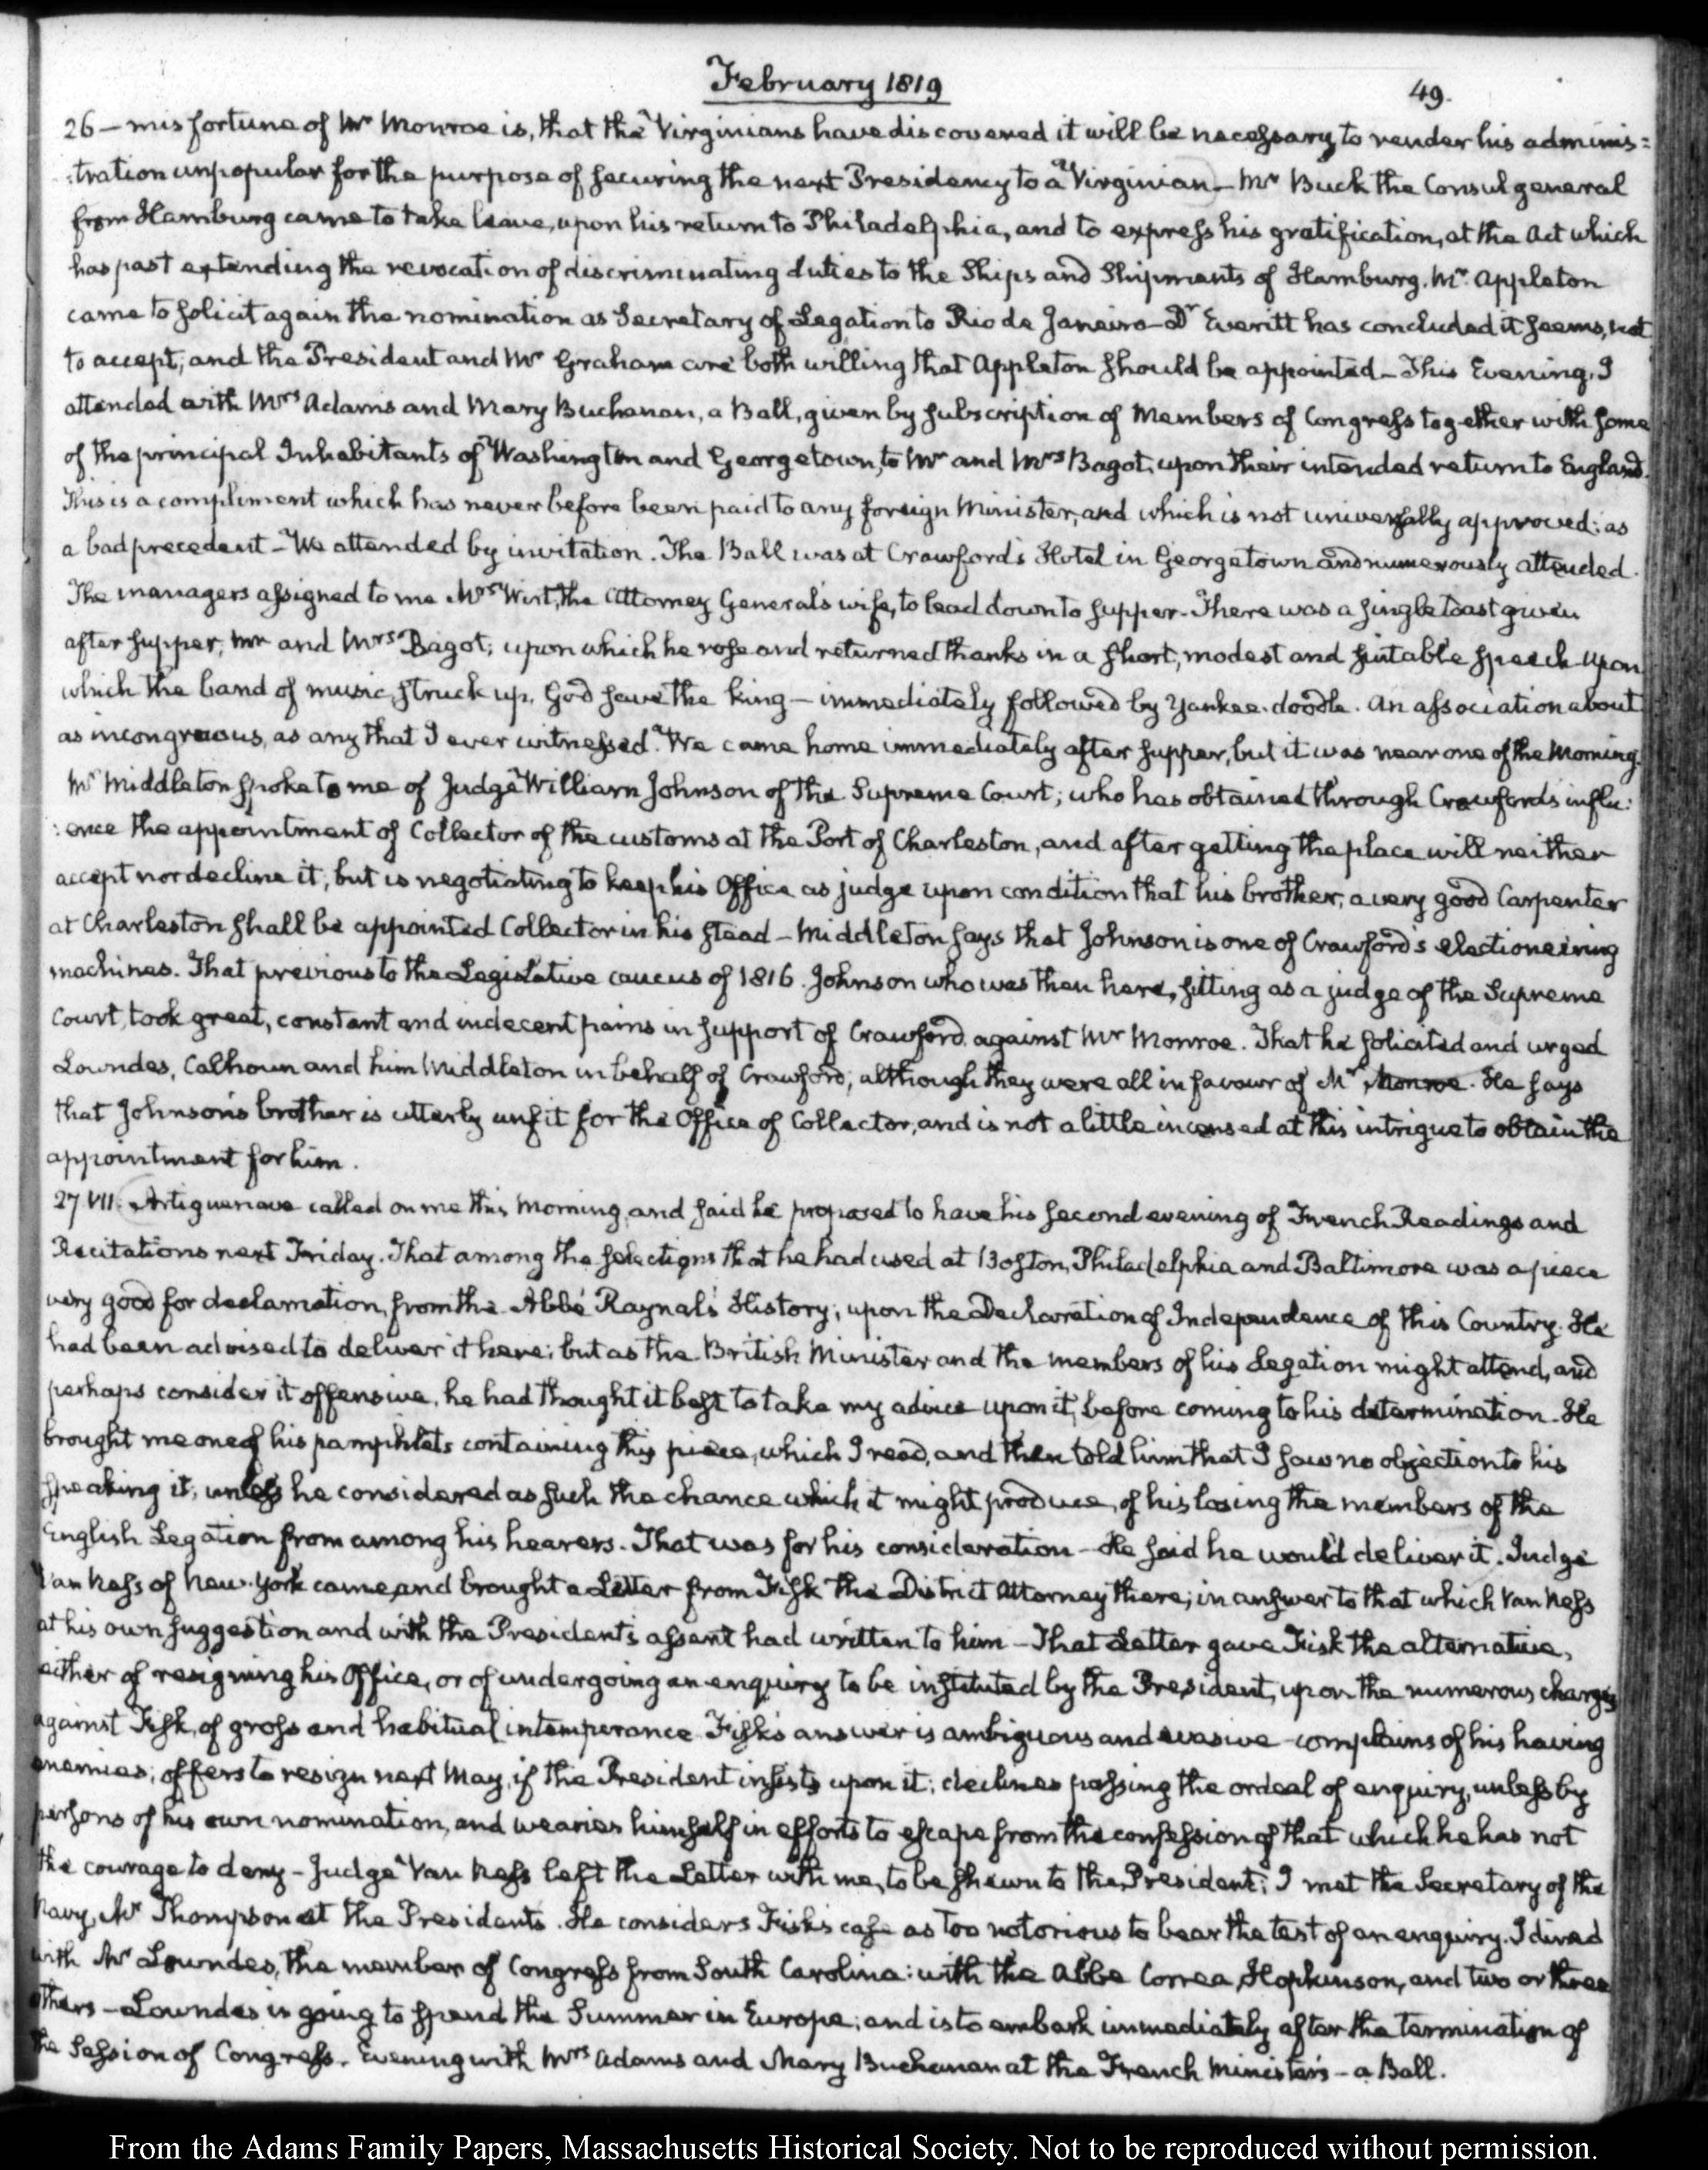 February 1819
49.
26 — misfortune of Mr Monroe is, that the Virginians have discovered it will be necessary to render his adminis=
:tration unpopular for the purpose of securing the next Presidency to a Virginian — Mr Buck the Consul general
from Hamburg came to take leave, upon his return to Philadelphia, and to express his gratification, at the Act which
has past extending the revocation of discriminating duties to the Ships and Shipments of Hamburg. Mr. Appleton
came to solicit again the nomination as Secretary of Legation to Rio de Janeiro — Dr Everitt has concluded it seems, not
to accept; and the President and Mr Graham are both willing that Appleton should be appointed — This Evening, I
attended with Mrs Adams and Mary Buchanan, a Ball, given by subscription of Members of Congress together with some
of the principal Inhabitants of Washington and Georgetown, to Mr and Mrs Bagot, upon their intended return to England.
This is a compliment which has never before been paid to any foreign Minister, and which is not universally approved: as
a bad precedent — We attended by invitation. The Ball was at Crawford's Hotel in Georgetown and numerously attended.
The managers assigned to me Mrs Wirt, the Attorney General's wife, to lead down to supper. There was a single toast given
after supper, Mr and Mrs Bagot; upon which he rose and returned thanks in a short, modest and suitable speech upon
which the band of music, struck up, God save the King — immediately followed by Yankee-doodle. An association about
as incongruous, as any that I ever witnessed. We came home immediately after supper, but it was near one of the Morning.
Mr Middleton spoke to me of Judge William Johnson of the Supreme Court; who has obtained through Crawford's influ:
:ence the appointment of Collector of the customs at the Port of Charleston, and after getting the place will neither
accept nor decline it, but is negotiating to keep his Office as judge upon condition that his brother, a very good Carpenter
at Charleston shall be appointed Collector in his stead — Middleton says that Johnson is one of Crawford's electioneering
machines. That previous to the Legislative caucus of 1816. Johnson who was then here, sitting as a judge of the Supreme
Court, took great, constant and indecent pains in support of Crawford, against Mr Monroe. That he solicited and urged
Lowndes, Calhoun and him Middleton in behalf of Crawford; although they were all in favour of Mr Monroe. He says
that Johnson's brother is utterly unfit for the Office of Collector, and is not a little incensed at this intrigue to obtain the
appointment for him.
27 VII. Artiguenave called on me this Morning, and said he proposed to have his second evening of French Readings and
Recitations next Friday. That among the selections that he had used at Boston, Philadelphia and Baltimore was a piece
very good for declamation, from the Abbé Raynal's History, upon the Declaration of Independence of this Country. He
had been advised to deliver it here; but as the British Minister and the members of his Legation might attend, and
perhaps consider it offensive, he had thought it best to take my advice upon it, before coming to his determination. He
brought me one of his pamphlets containing this piece, which I read, and then told him that I saw no objection to his
speaking it, unless he considered as such the chance which it might produce, of his losing the members of the
English Legation from among his hearers. That was for his consideration — He said he would deliver it. Judge
Van Ness of New-York came, and brought a Letter from Fisk the District Attorney there; in answer to that which Van Ness
at his own suggestion and with the President's assent had written to him — That Letter gave Fisk the alternative,
either of resigning his Office, or of undergoing an enquiry to be instituted by the President, upon the numerous charges
against Fisk, of gross and habitual intemperance. Fisk's answer is ambiguous and evasive — complains of his having
enemies; offers to resign next May, if the President insists upon it; declines passing the ordeal of enquiry, unless by
persons of his own nomination, and wearies himself in efforts to escape from the confession of that which he has not
the courage to deny — Judge Van Ness left the Letter with me, to be shewn to the President; I met the Secretary of the
Navy, Mr Thompson at the Presidents. He considers Fisk's case as too notorious to bear the test of an enquiry. I dined
with Mr Lowndes, the member of Congress from South Carolina: with the Abbe Correa, Hopkinson, and two or three
others — Lowndes is going to spend the Summer in Europe; and is to embark immediately after the termination of
the Session of Congress. Evening with Mrs Adams and Mary Buchanan at the French Minister's — a Ball.
From the Adams Family Papers, Massachusetts Historical Society. Not to be reproduced without permission.